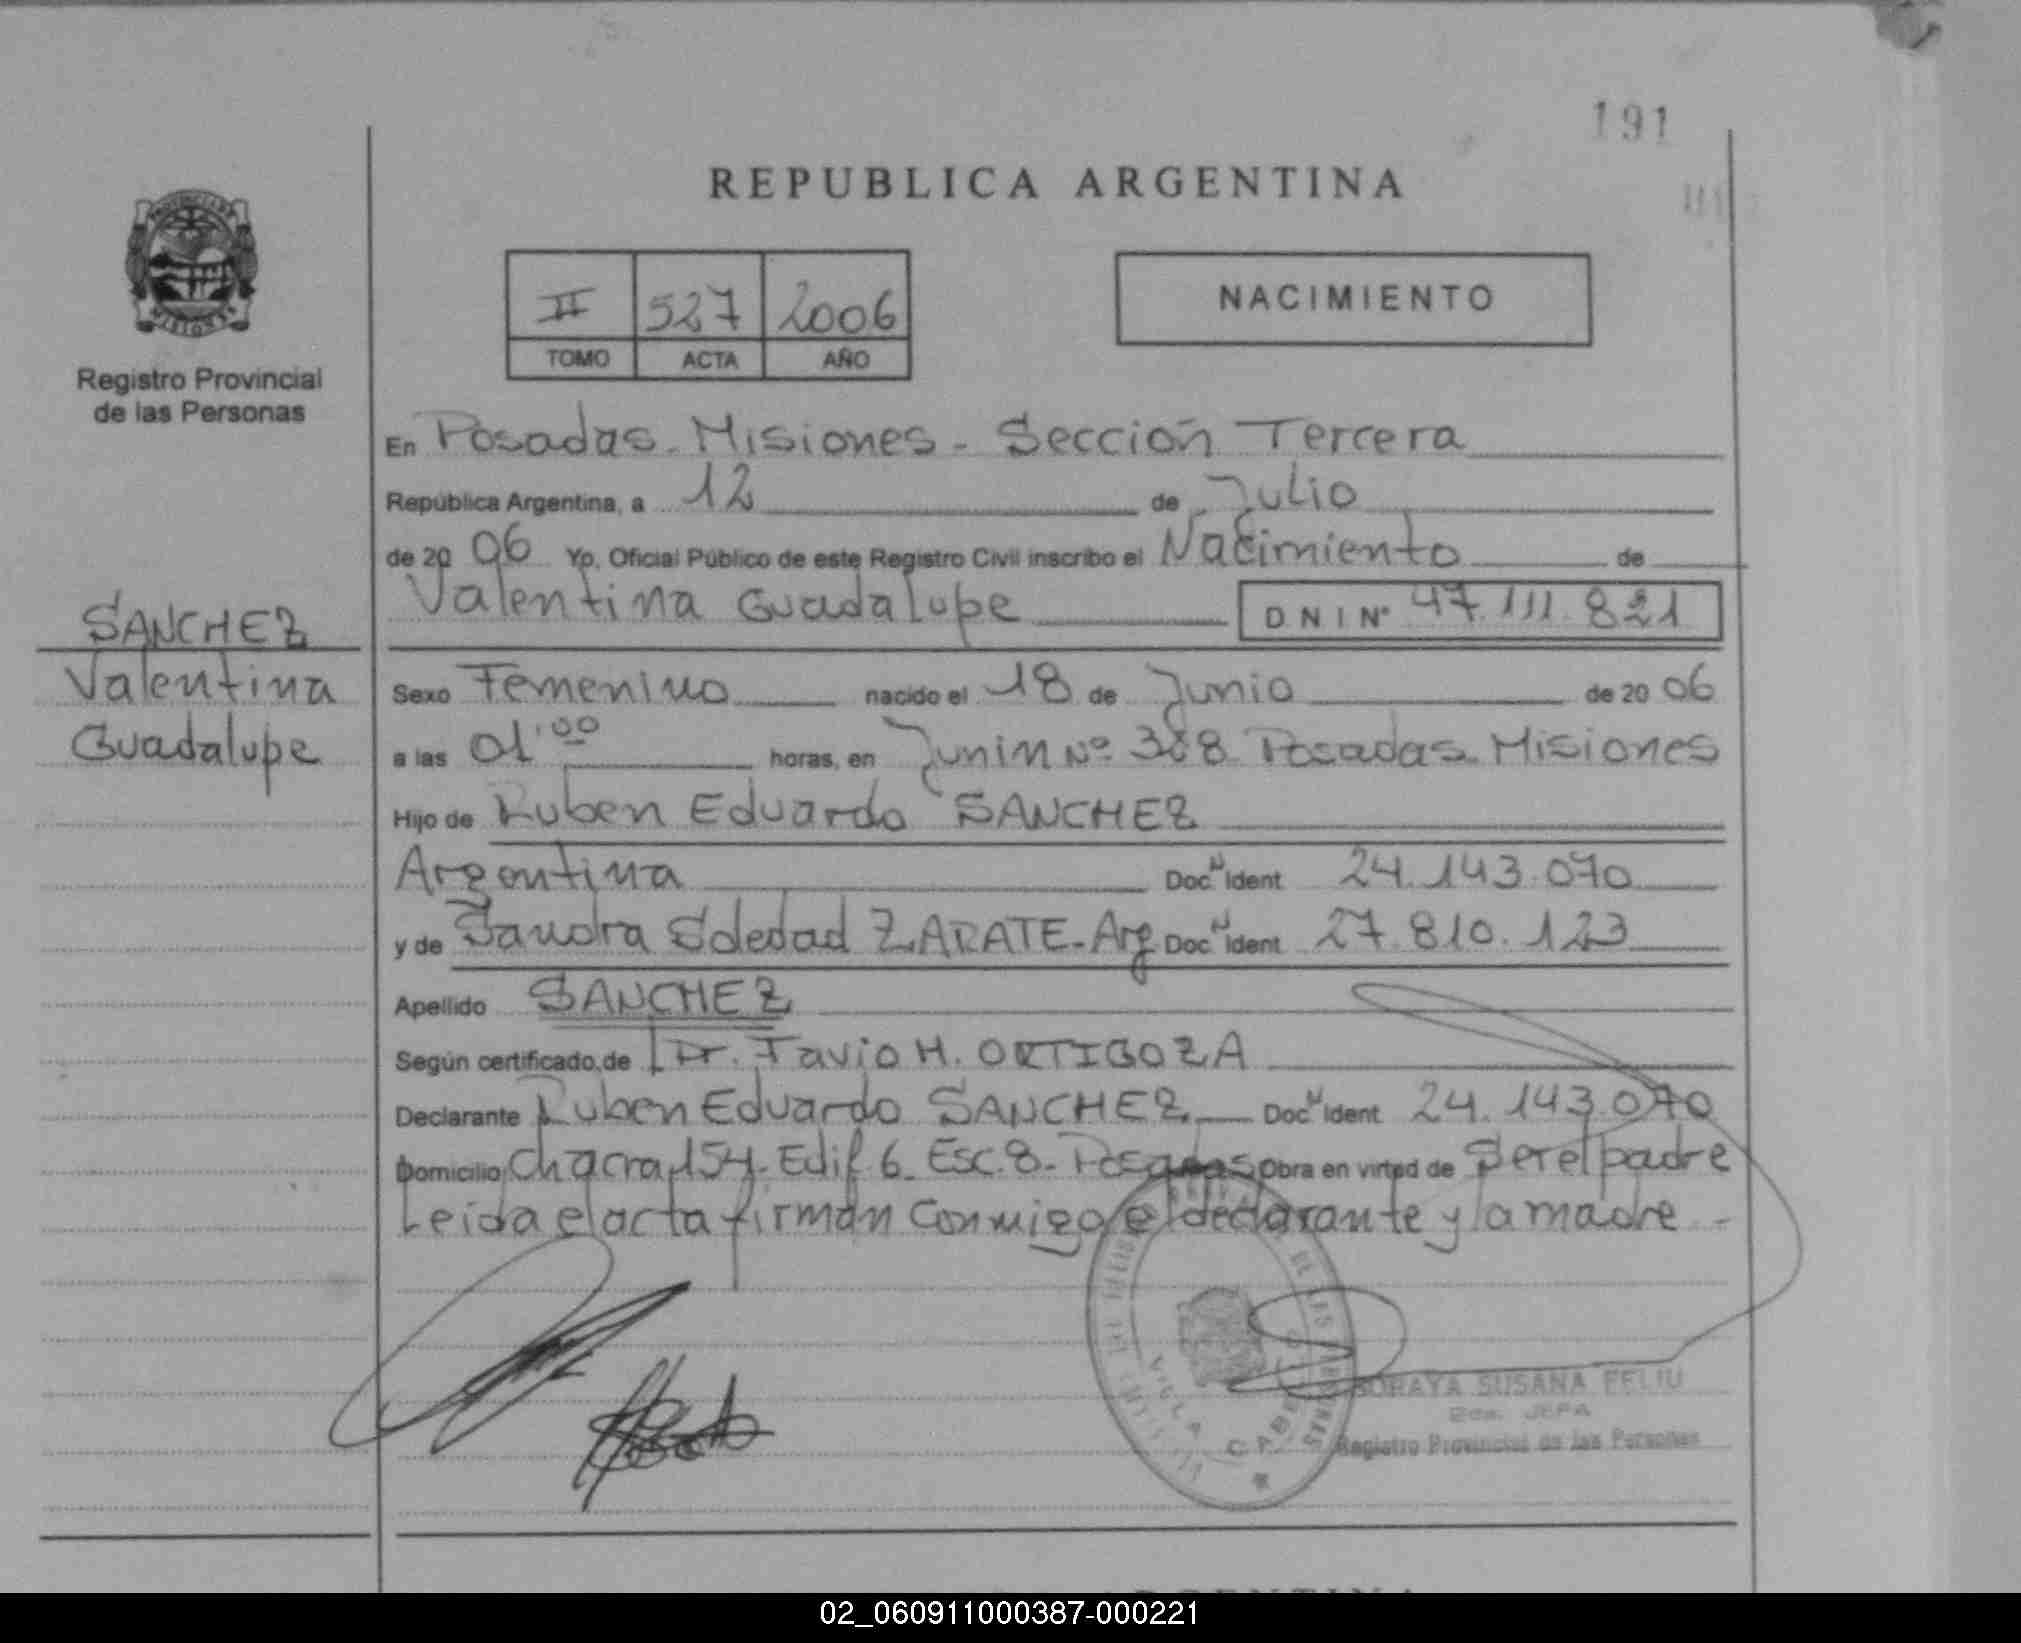 191
REPUBLICA ARGENTINA
II 527 2006
TOMO ACTA AÑO
NACIMIENTO
Registro Provincial
de las Personas
SANCHEZ
Valentina
Guadalupe
En Posadas - Misiones - Sección Tercera
República Argentina, a 12 de Julio
de 20 06 Yo, Oficial Público de este Registro Civil inscribo el Nacimiento de
Valentina Guadalupe DNI Nº 47.111.821
Sexo Femenino nacido el 18 de Junio de 20 06
a las 01:00 horas, en Junin Nº 368 Posadas - Misiones
Hijo de Ruben Eduardo SANCHEZ
Argentina Doc N Ident 24.143.070
y de Sandra Soledad ZARATE - Arg Doc N Ident 27.810.123
Apellido SANCHEZ
Según certificado de Dr. Favio H. ORTIGOZA
Declarante Ruben Eduardo SANCHEZ Doc N Ident 24.143.070
Domicilio Chacra 154 - Edif. 6 Esc. 8 - Posadas Obra en virted de Ser el padre
Leida el acta firman Conmigo el declarante y la madre -
VILLA CABE
SORAYA SUSANA FELIU
2da. JEFA
Registro Provincial de las Personas
02_060911000387-000221